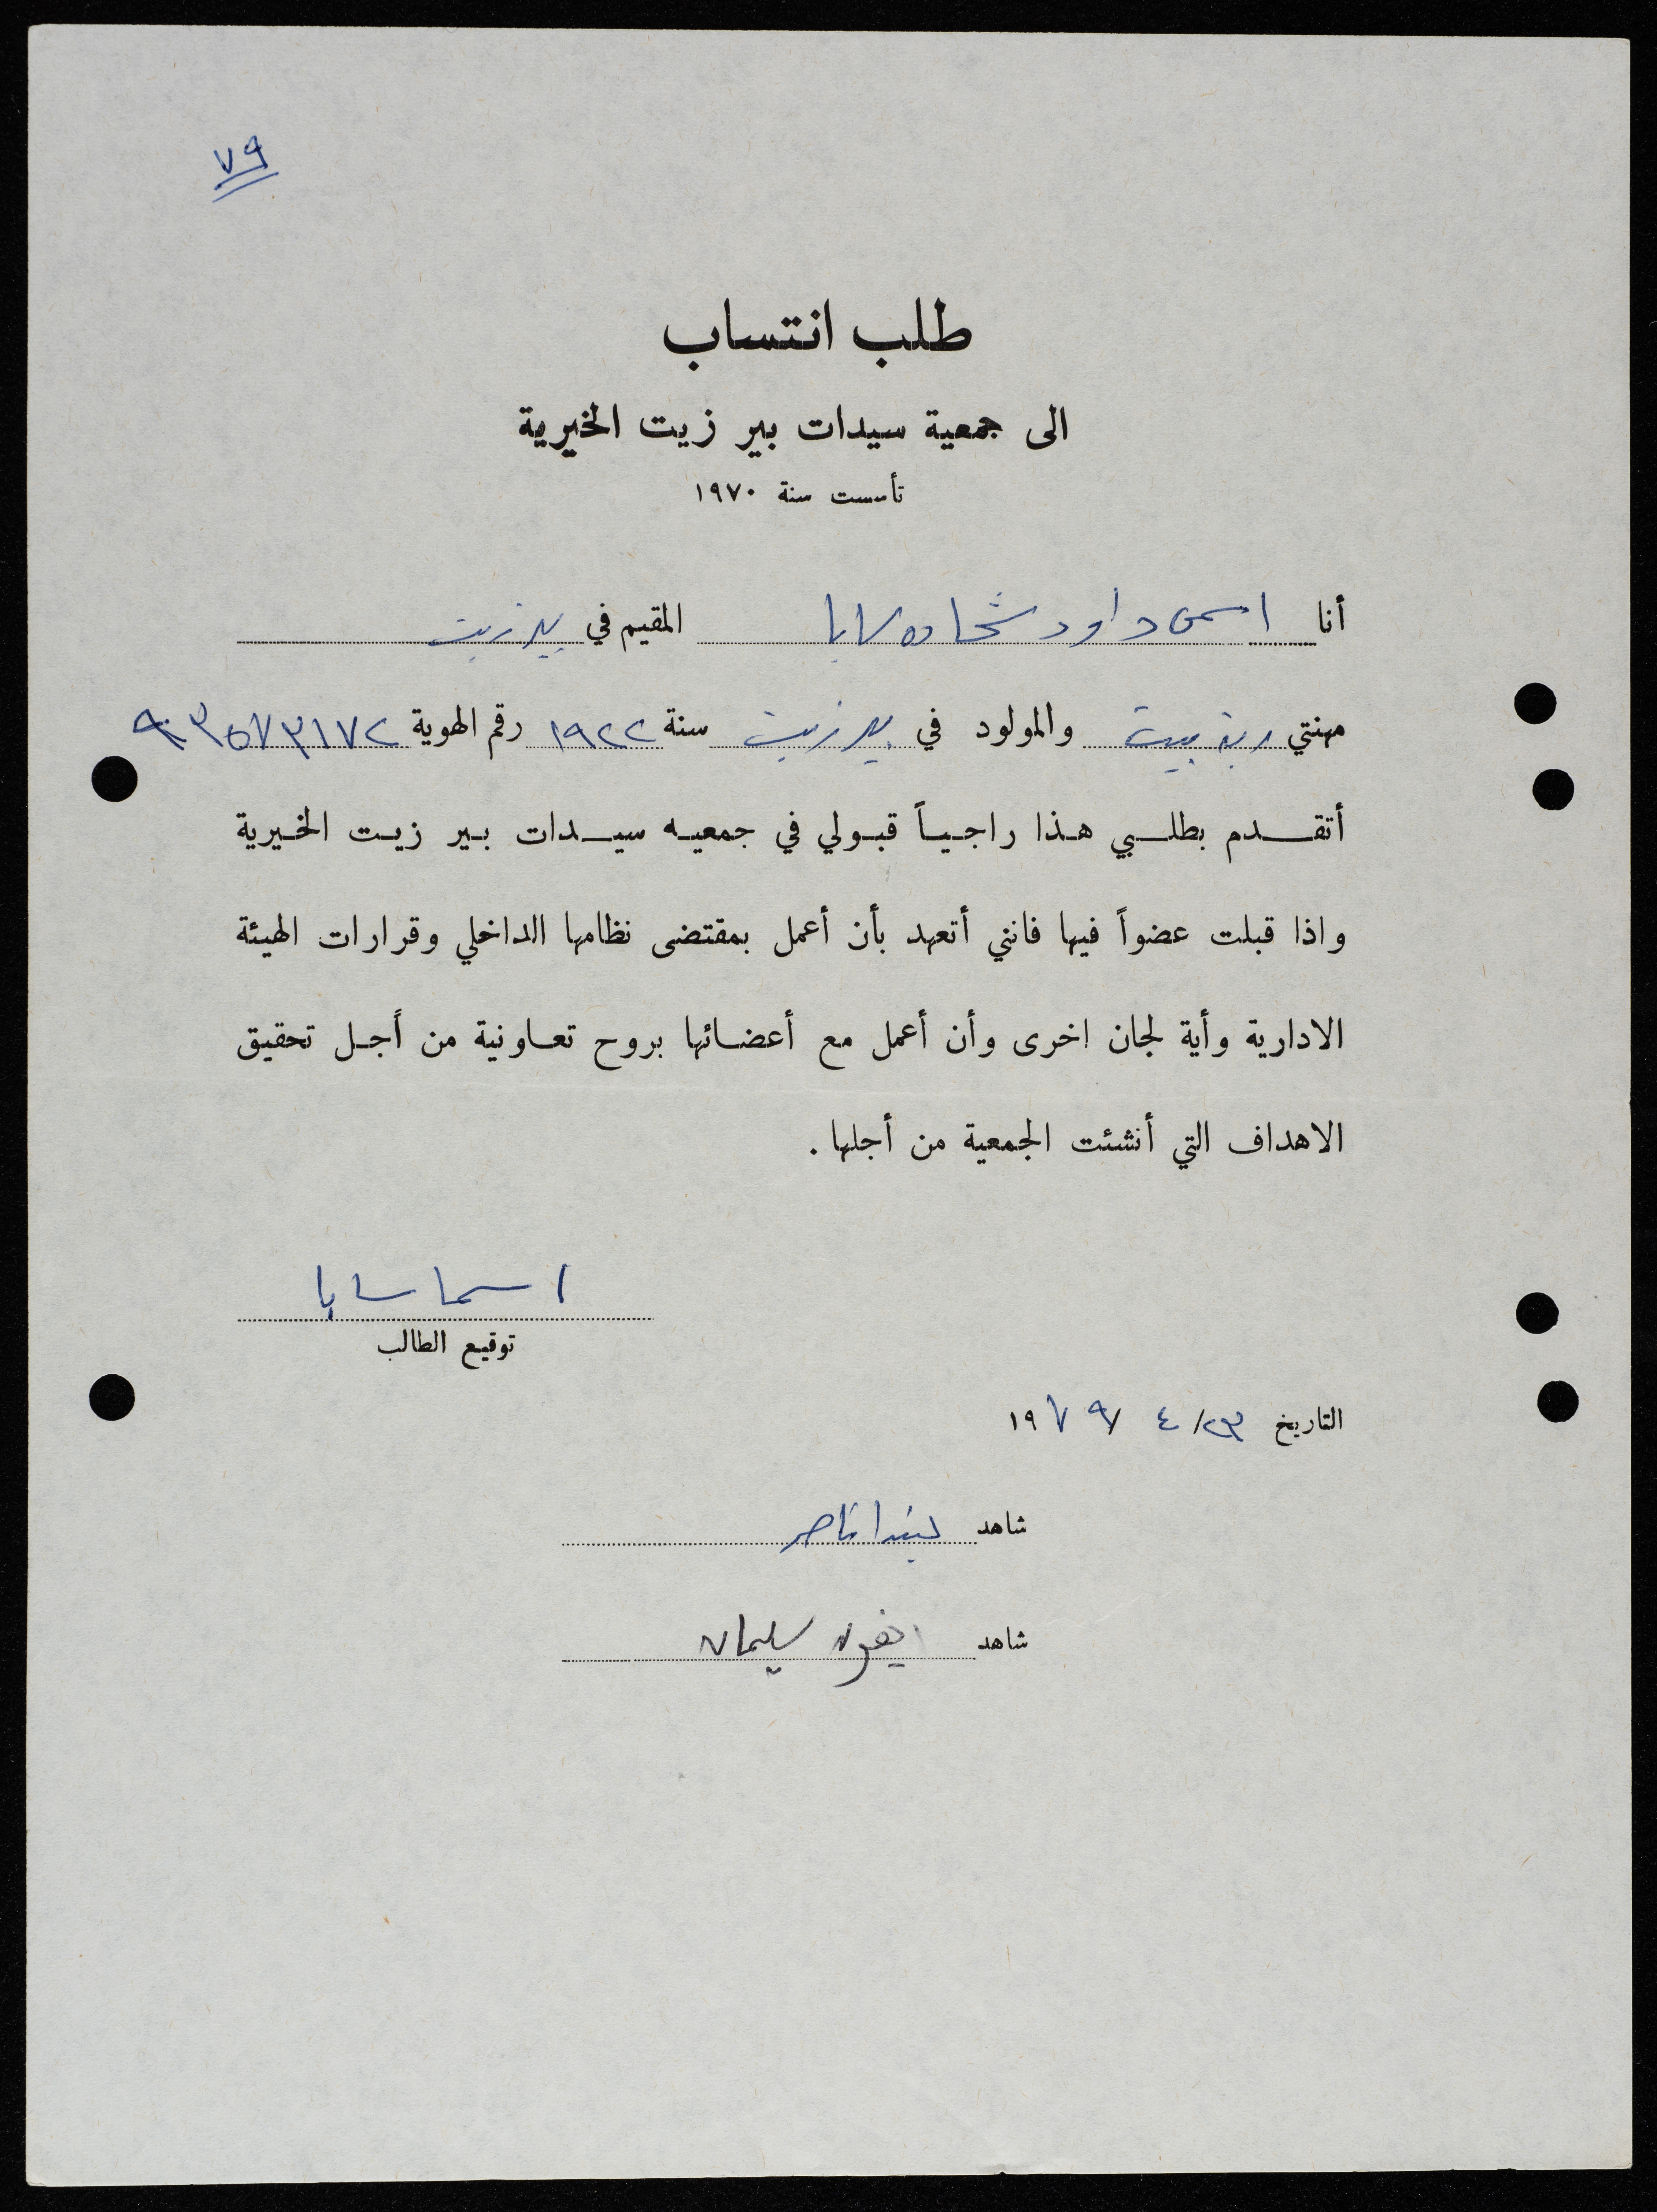 ٧٩
طلب انتساب
الى جمعية سيدات بير زيت الخيرية
تأسست سنة ١٩٧٠
أنا اسمى داود شحاده سابا المقيم في بيرزيت
مهنتي ربة بيت والمولود في بيرزيت سنة ١٩٢٢ رقم الهوية ٩٣٥٧٣١٧٢
أتقدم بطلبي هذا راجياً قبولي في جمعيه سيدات بير زيت الخيرية
واذا قبلت عضواً فيها فانني أتعهد بأن أعمل بمقتضى نظامها الداخلي وقرارات الهيئة
الادارية وأية لجان اخرى وأن أعمل مع أعضائها بروح تعاونية من أجل تحقيق
الاهداف التي أنشئت الجمعية من أجلها .
اسما سابا
توقيع الطالب
التاريخ ٢٣/ ٤ /١٩٧٩
شاهد ناصر
شاهد ايفون سليمان